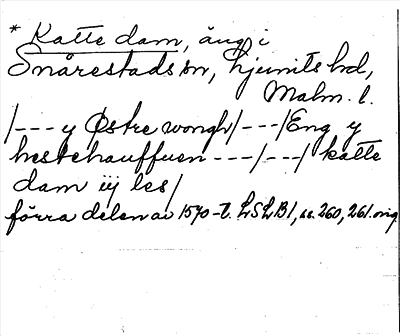 * Katte dam, äng i
Snårestads sn, Ljunits hd,
Malm. l.
/--- y Østre wongh/---/Eng y
hestehauffuen ---/---/ katte
dam iij les/
förra delen av 1570-t. LSLB1, ss. 260, 261. orig.